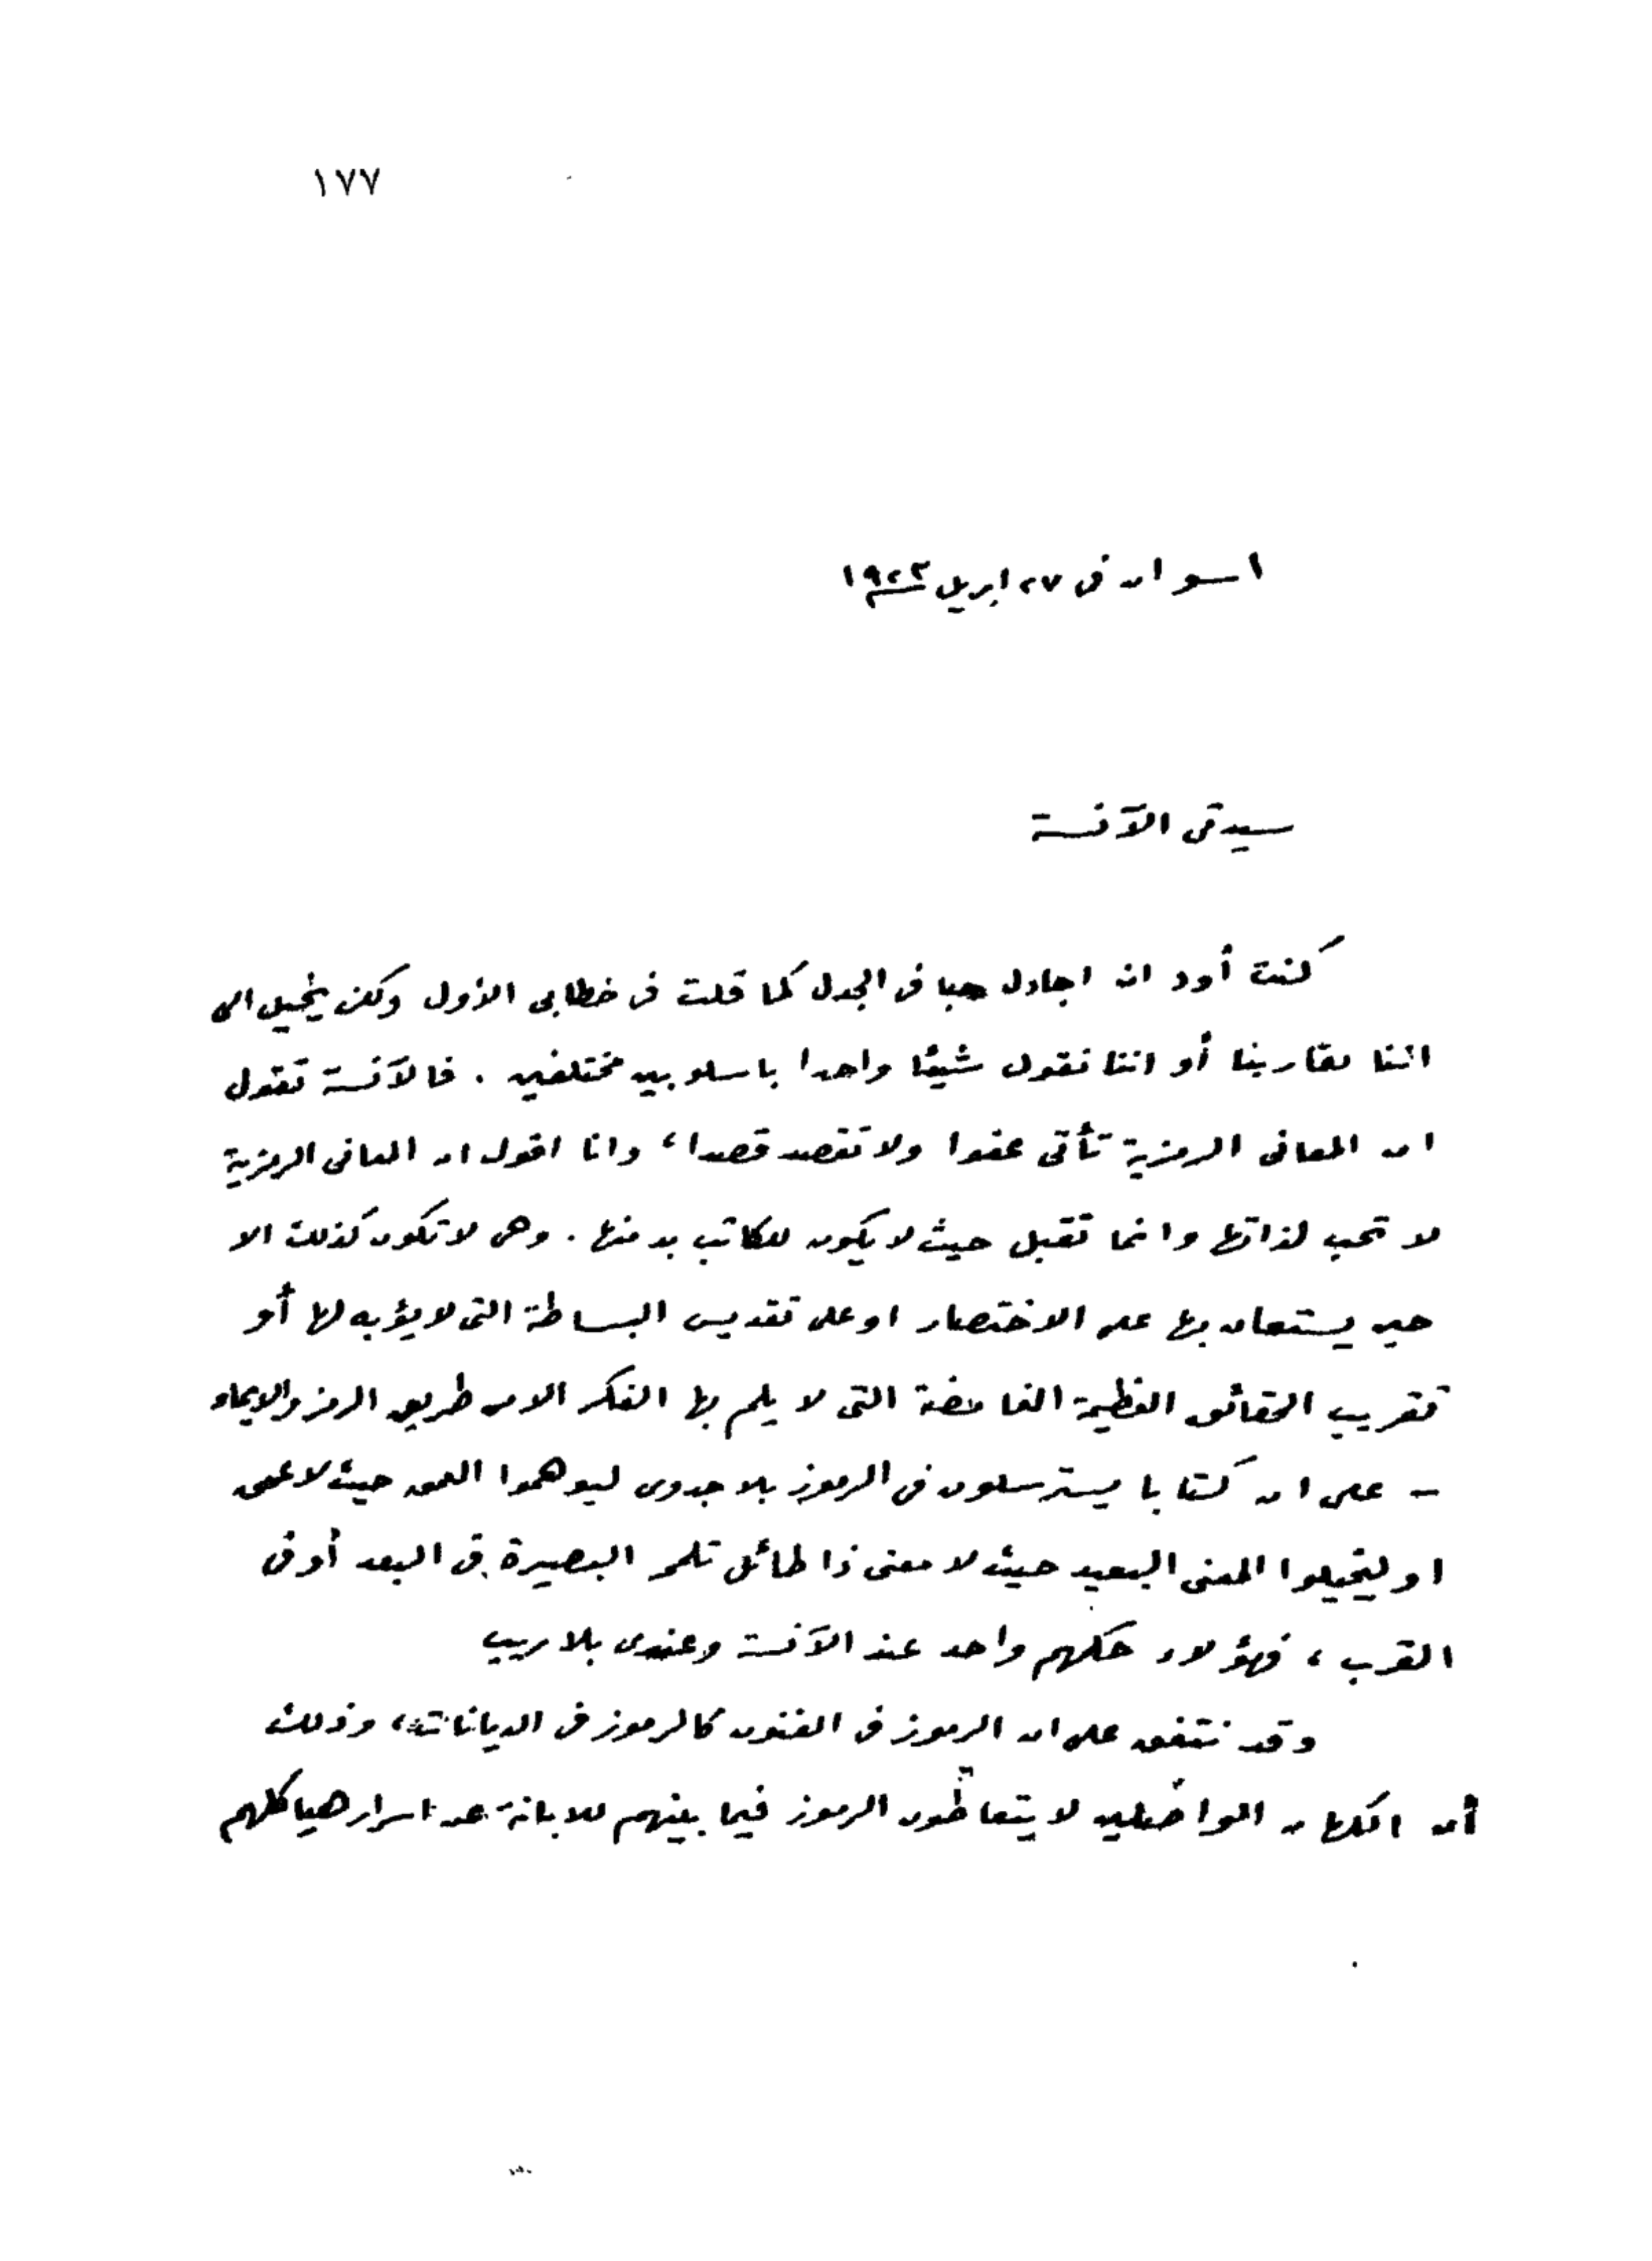 ١٧٧
اسوان فى ٢٧ ابريل ١٩٢٢
سيدتى الآنسة
كنت أود ان اجادل حبا فى الجدل كما قلت فى خطابى الاول ولكن يخيل الى
اننا تقاربنا أو اننا نقول شيئا واحدا باسلوبين مختلفين . فالآنسة تقول
ان المعانى الرمزية تأتى عفوا ولا تقصد قصدا، وانا اقول ان المعانى الرمزية
لا تحب لذاتها وانما تقبل حيث لا يكون للكاتب بد منها . وهى لا تكون كذلك الا
حين يستعان بها على الاختصار او على تقديس البساطة التى لا يؤبه لها أو
تقريب الحقائق العظيمة الغامضة التى لا يلم بها الفكر الا من طريق الرمز والايماء
- على ان كتابا يسترسلون فى الرموز بلا جدوى ليوهموا العمق حيث لا عمق
او ليخيلوا المعنى البعيد حيث لا معنى ذا طائل تلمحه البصيرة فى البعد أو فى
القرب ، فهؤلاء حكمهم واحد عند الآنسة وعندى بلا ريب
وقد نتفق على ان الرموز فى الفنون كالرموز فى الديانات، وذلك
أن الكهان لا يتعاطون الرموز فيما بينهم للابانة عن اسرار هياكلهم